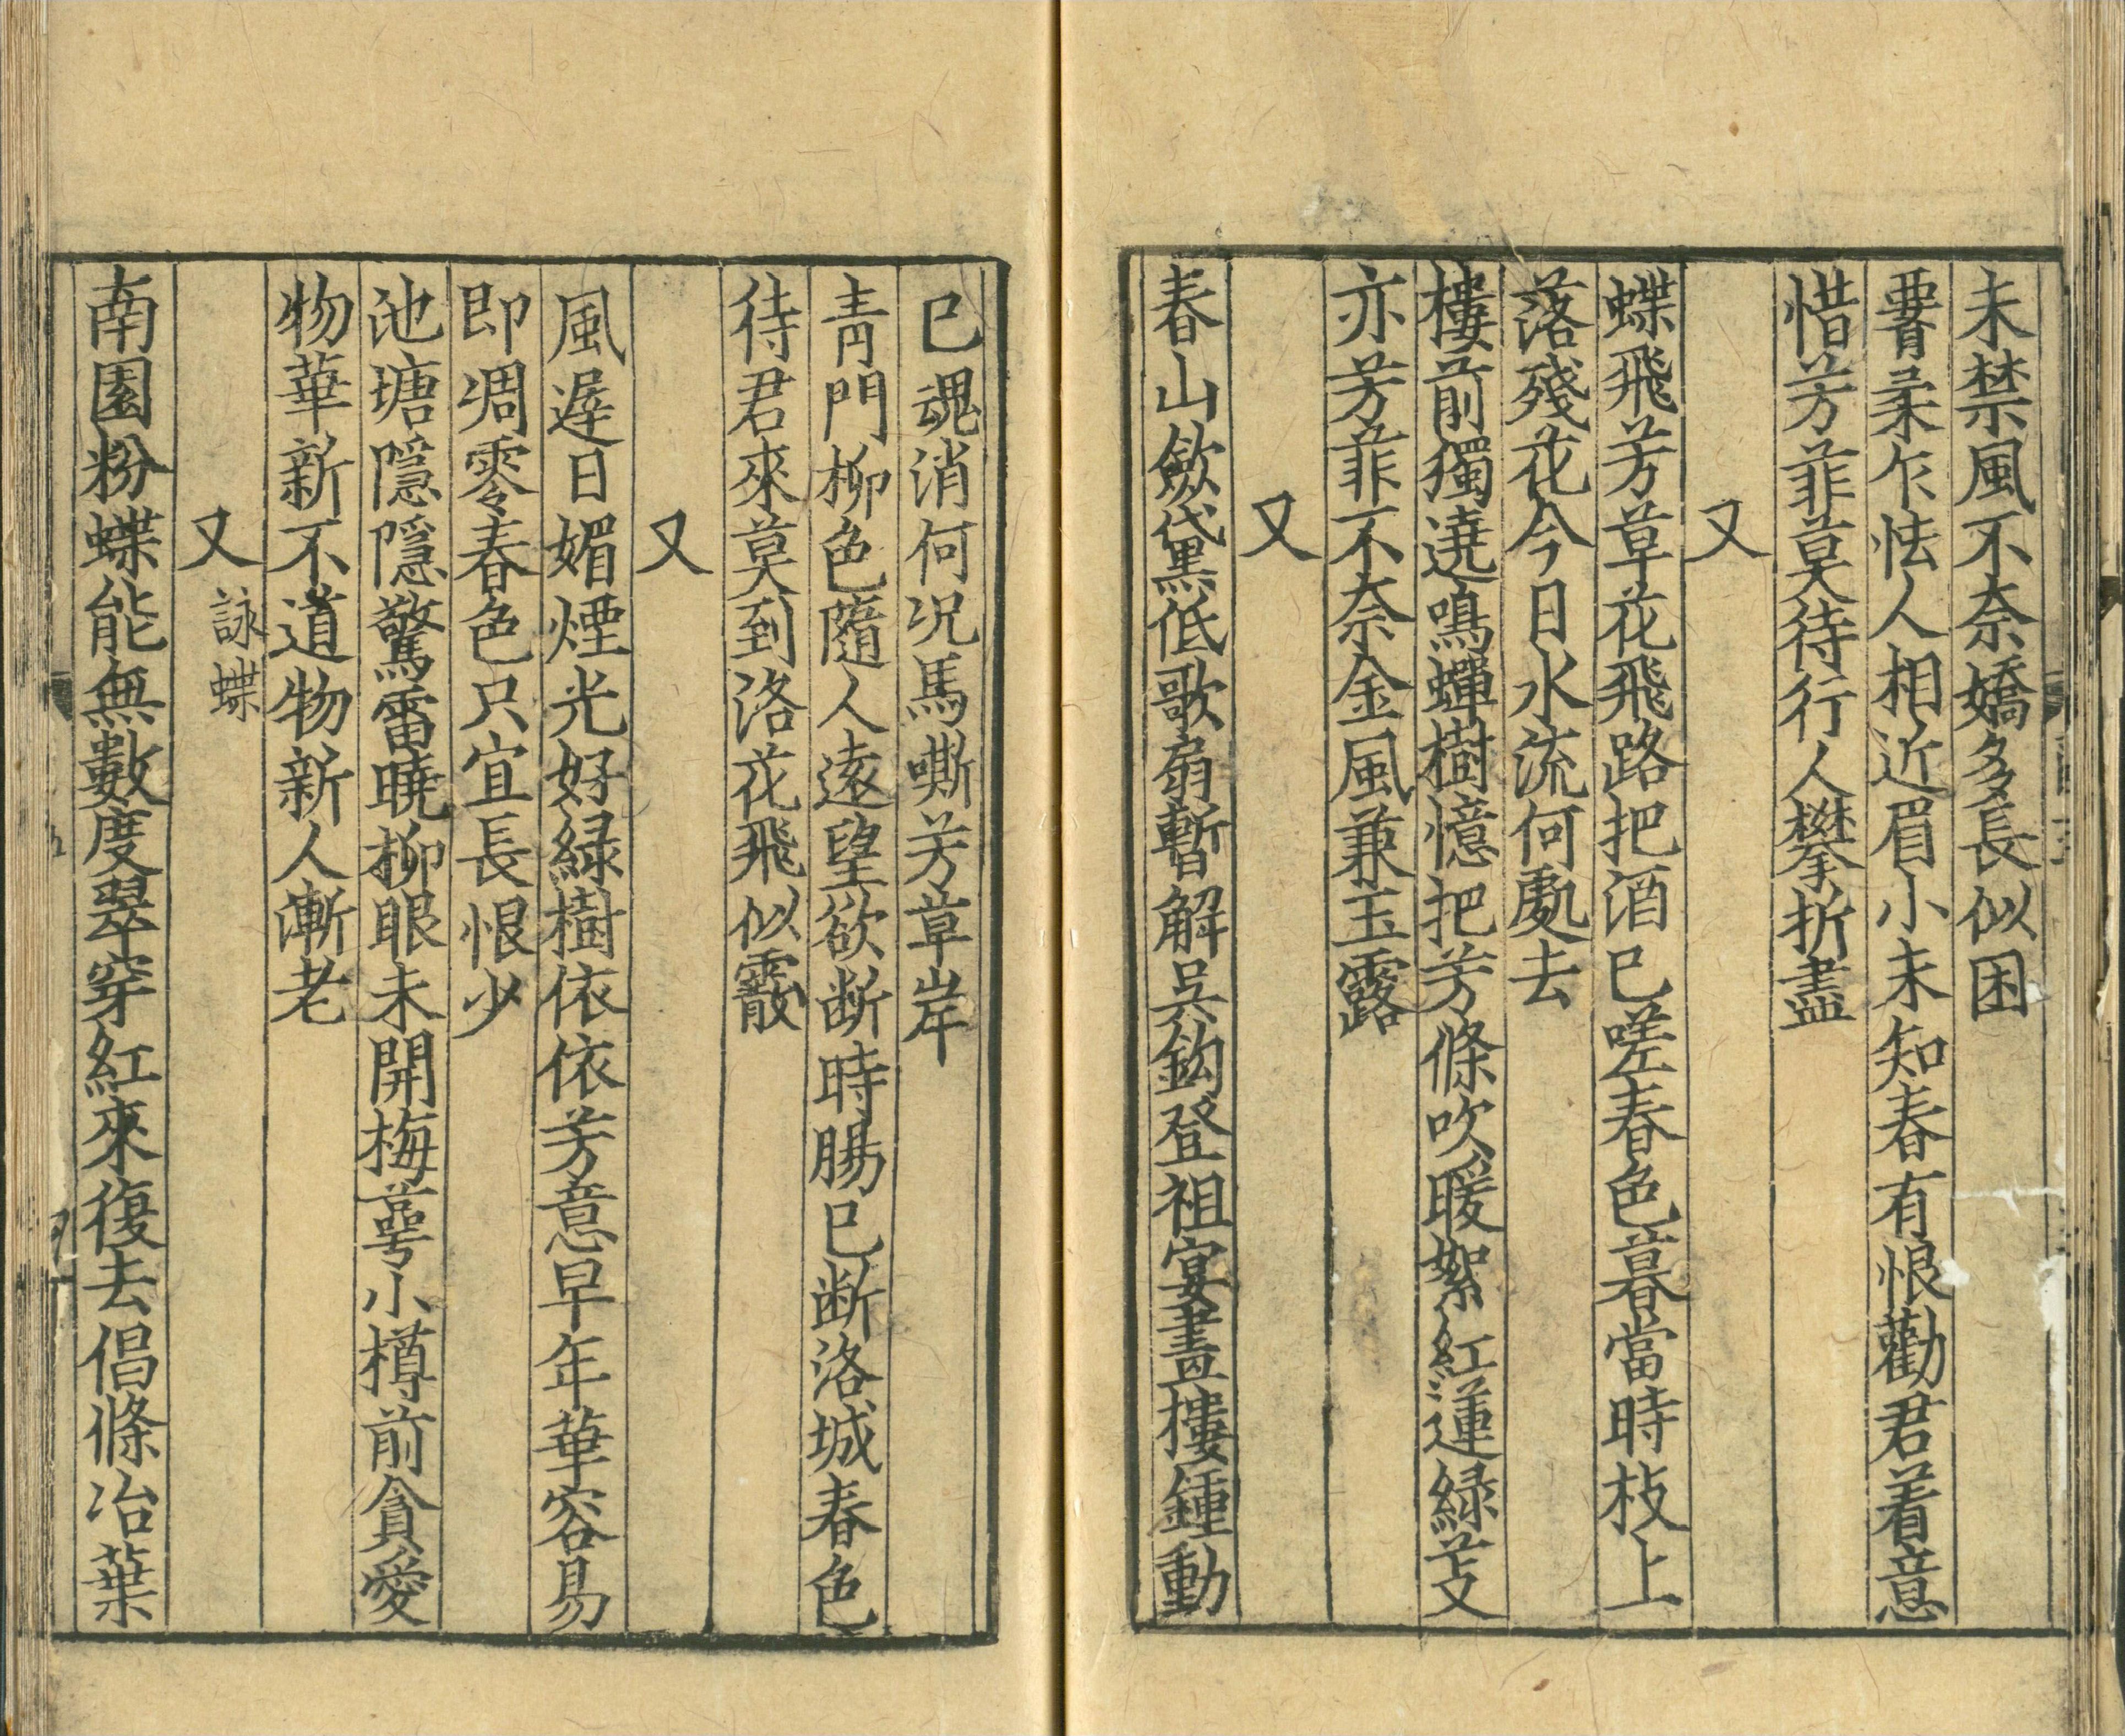 未禁風不奈嬌多長似困
䙅柔乍怯人相近眉小未知春有恨勸君着意
惜芳菲莫待行人攀折盡
又
蝶飛芳草花飛路把酒已嗟春色暮當時枝上
落殘花今日水流何處去
樓前獨遶鳴蟬樹憶把芳條吹暖絮紅蓮綠芰
亦芳菲不奈金風兼玉露
又
春山歛黛低歌扇暫解吳鈎登祖宴畫樓鍾動
已魂消何况馬嘶芳草岸
青門柳色隨人遠望欲断時腸已断洛城春色
待君來莫到洛花飛似霰
又
風遲日媚煙光好綠樹依依芳意早年華容易
即凋零春色只宜長恨少
池塘隱隱驚雷曉柳眼未開梅萼小樽前貪愛
物華新不道物新人漸老
又 詠蝶
南園粉蝶能無數度翠穿紅來復去倡條冶葉